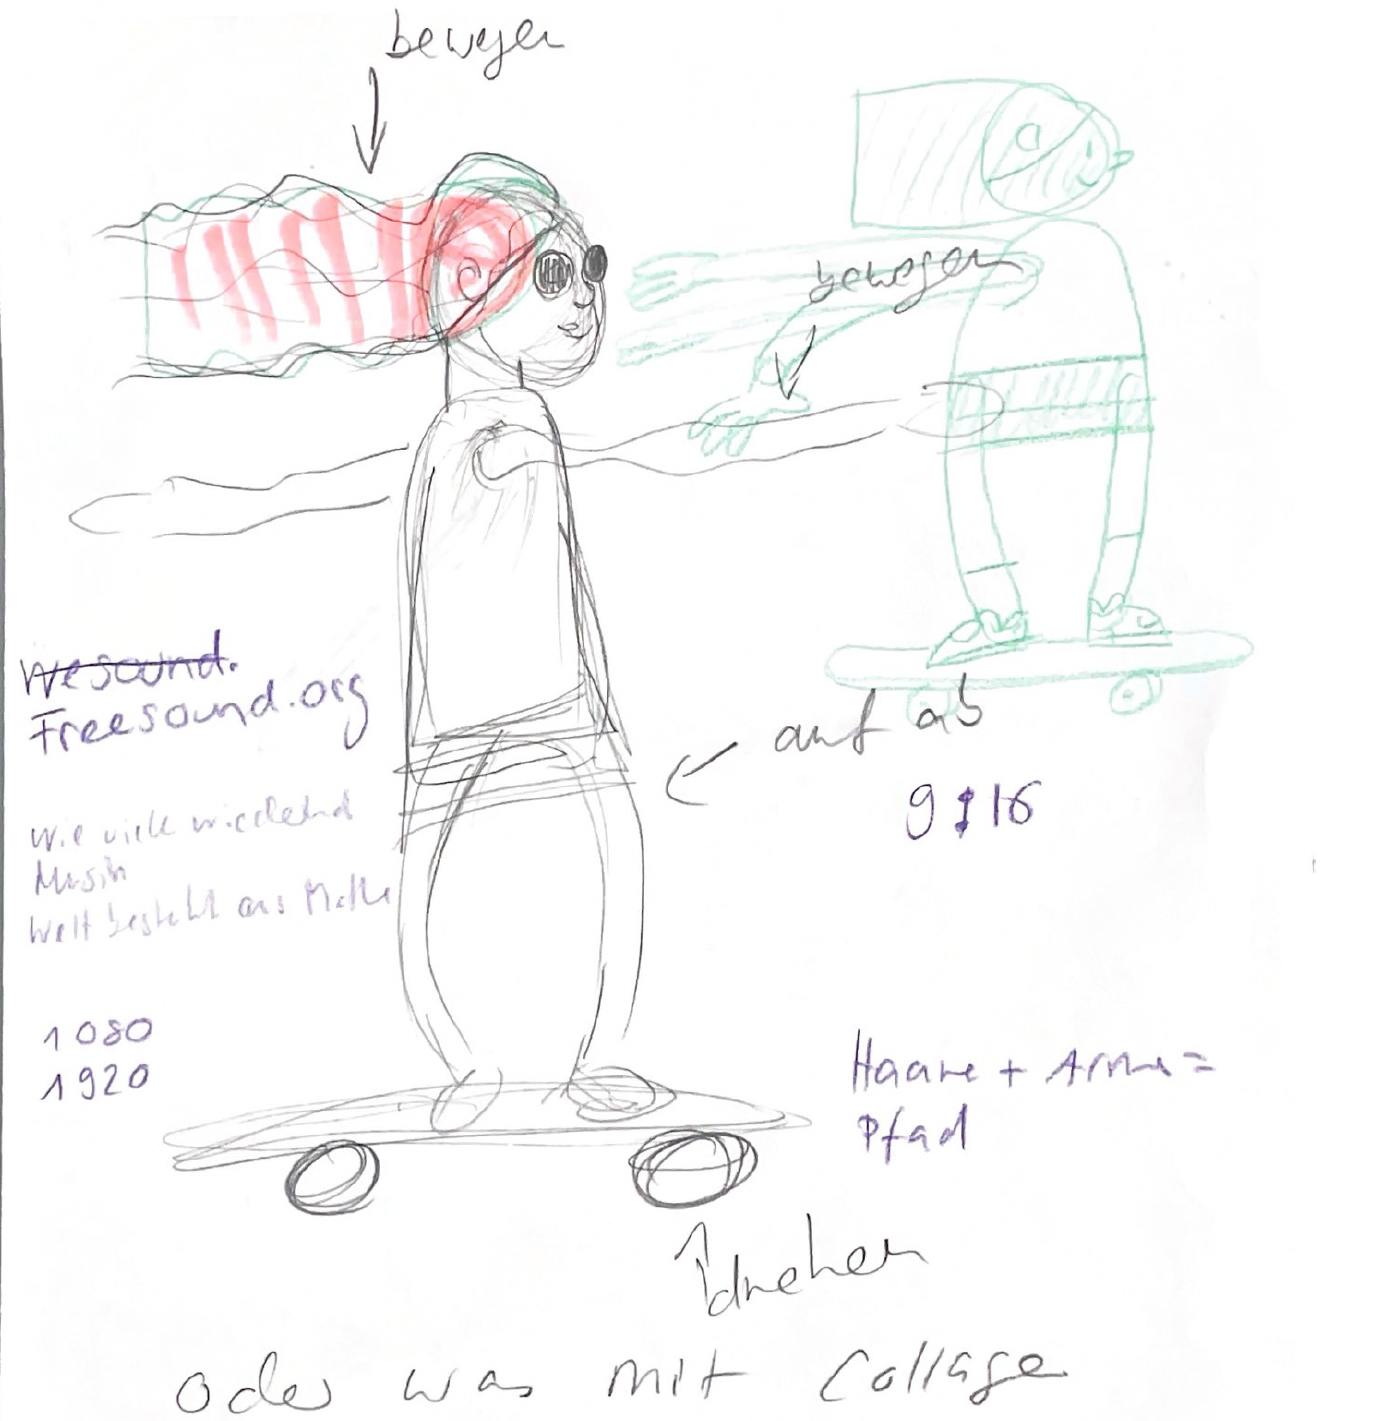 bewegen
bewegen
wesound.
Freesound.org
auf ab
9:16
wie viele
Musik
Welt besteht aus Mathe
1080
1920
Haare + Arme =
Pfad
drehen
oder was mit Collage